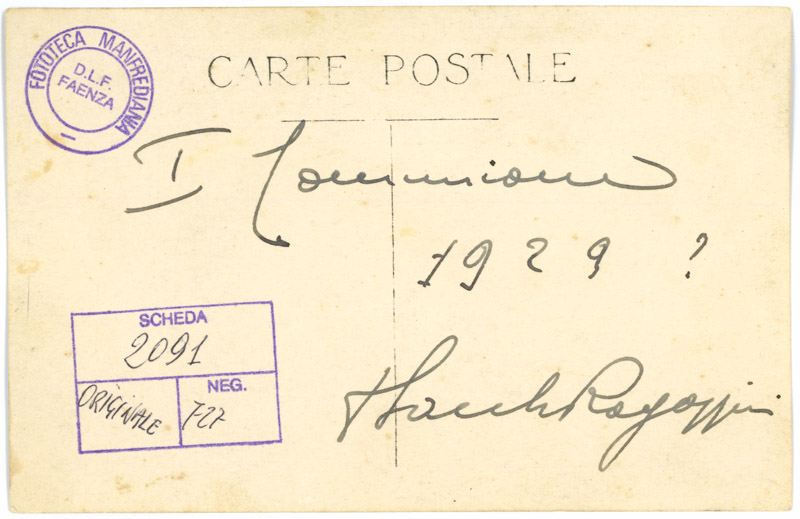 FOTOTECA MANFREDIANA
D.L.F.
FAENZA
CARTE POSTALE
I Comunione
1929 ?
SCHEDA
2091
ORIGINALE
NEG.
F27
Ragazzini